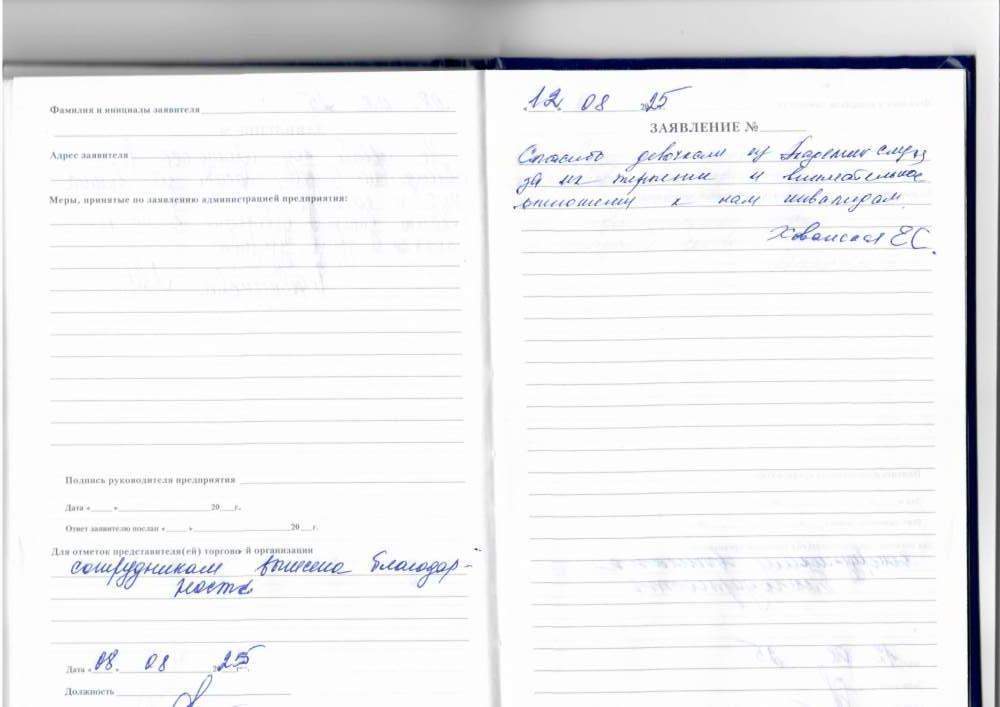 Фамилия и инициалы заявителя
Адрес заявителя
Меры, принятые по заявлению администрацией предприятия:
Подпись руководителя предприятия
Дата « » 20 г.
Ответ заявителю послан « » 20 г.
Для отметок представителя(ей) торговой организации
сотрудникам вынесена благодар-
ность
Дата «08. 08 2025
Должность
12. 08 2025
ЗАЯВЛЕНИЕ №
Спасибо девочкам из Академии слуха
за их терпение и внимательное
отношение к нам инвалидам.
Хованская ЕС.